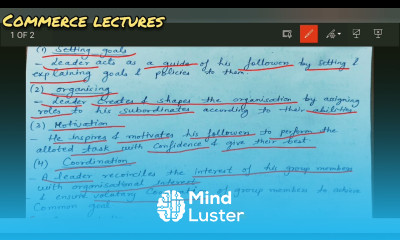 COMMERCE LECTURES
1 OF 2
(1) Setting goals
- Leader acts as a guide of his followers by setting &
explaining goals & policies to them
(2) organising
- Leader creates & shapes the organisation by assigning
roles to his subordinates according to their abilities
(3) Motivation
- He inspires & motivates his followers to perform the
alloted task with confidence & give their best
(4) Coordination
- A leader reconciles the interest of his group members
with organisational interest
- & ensure voluntary of group members to achieve
Common goal
Mind
Luster